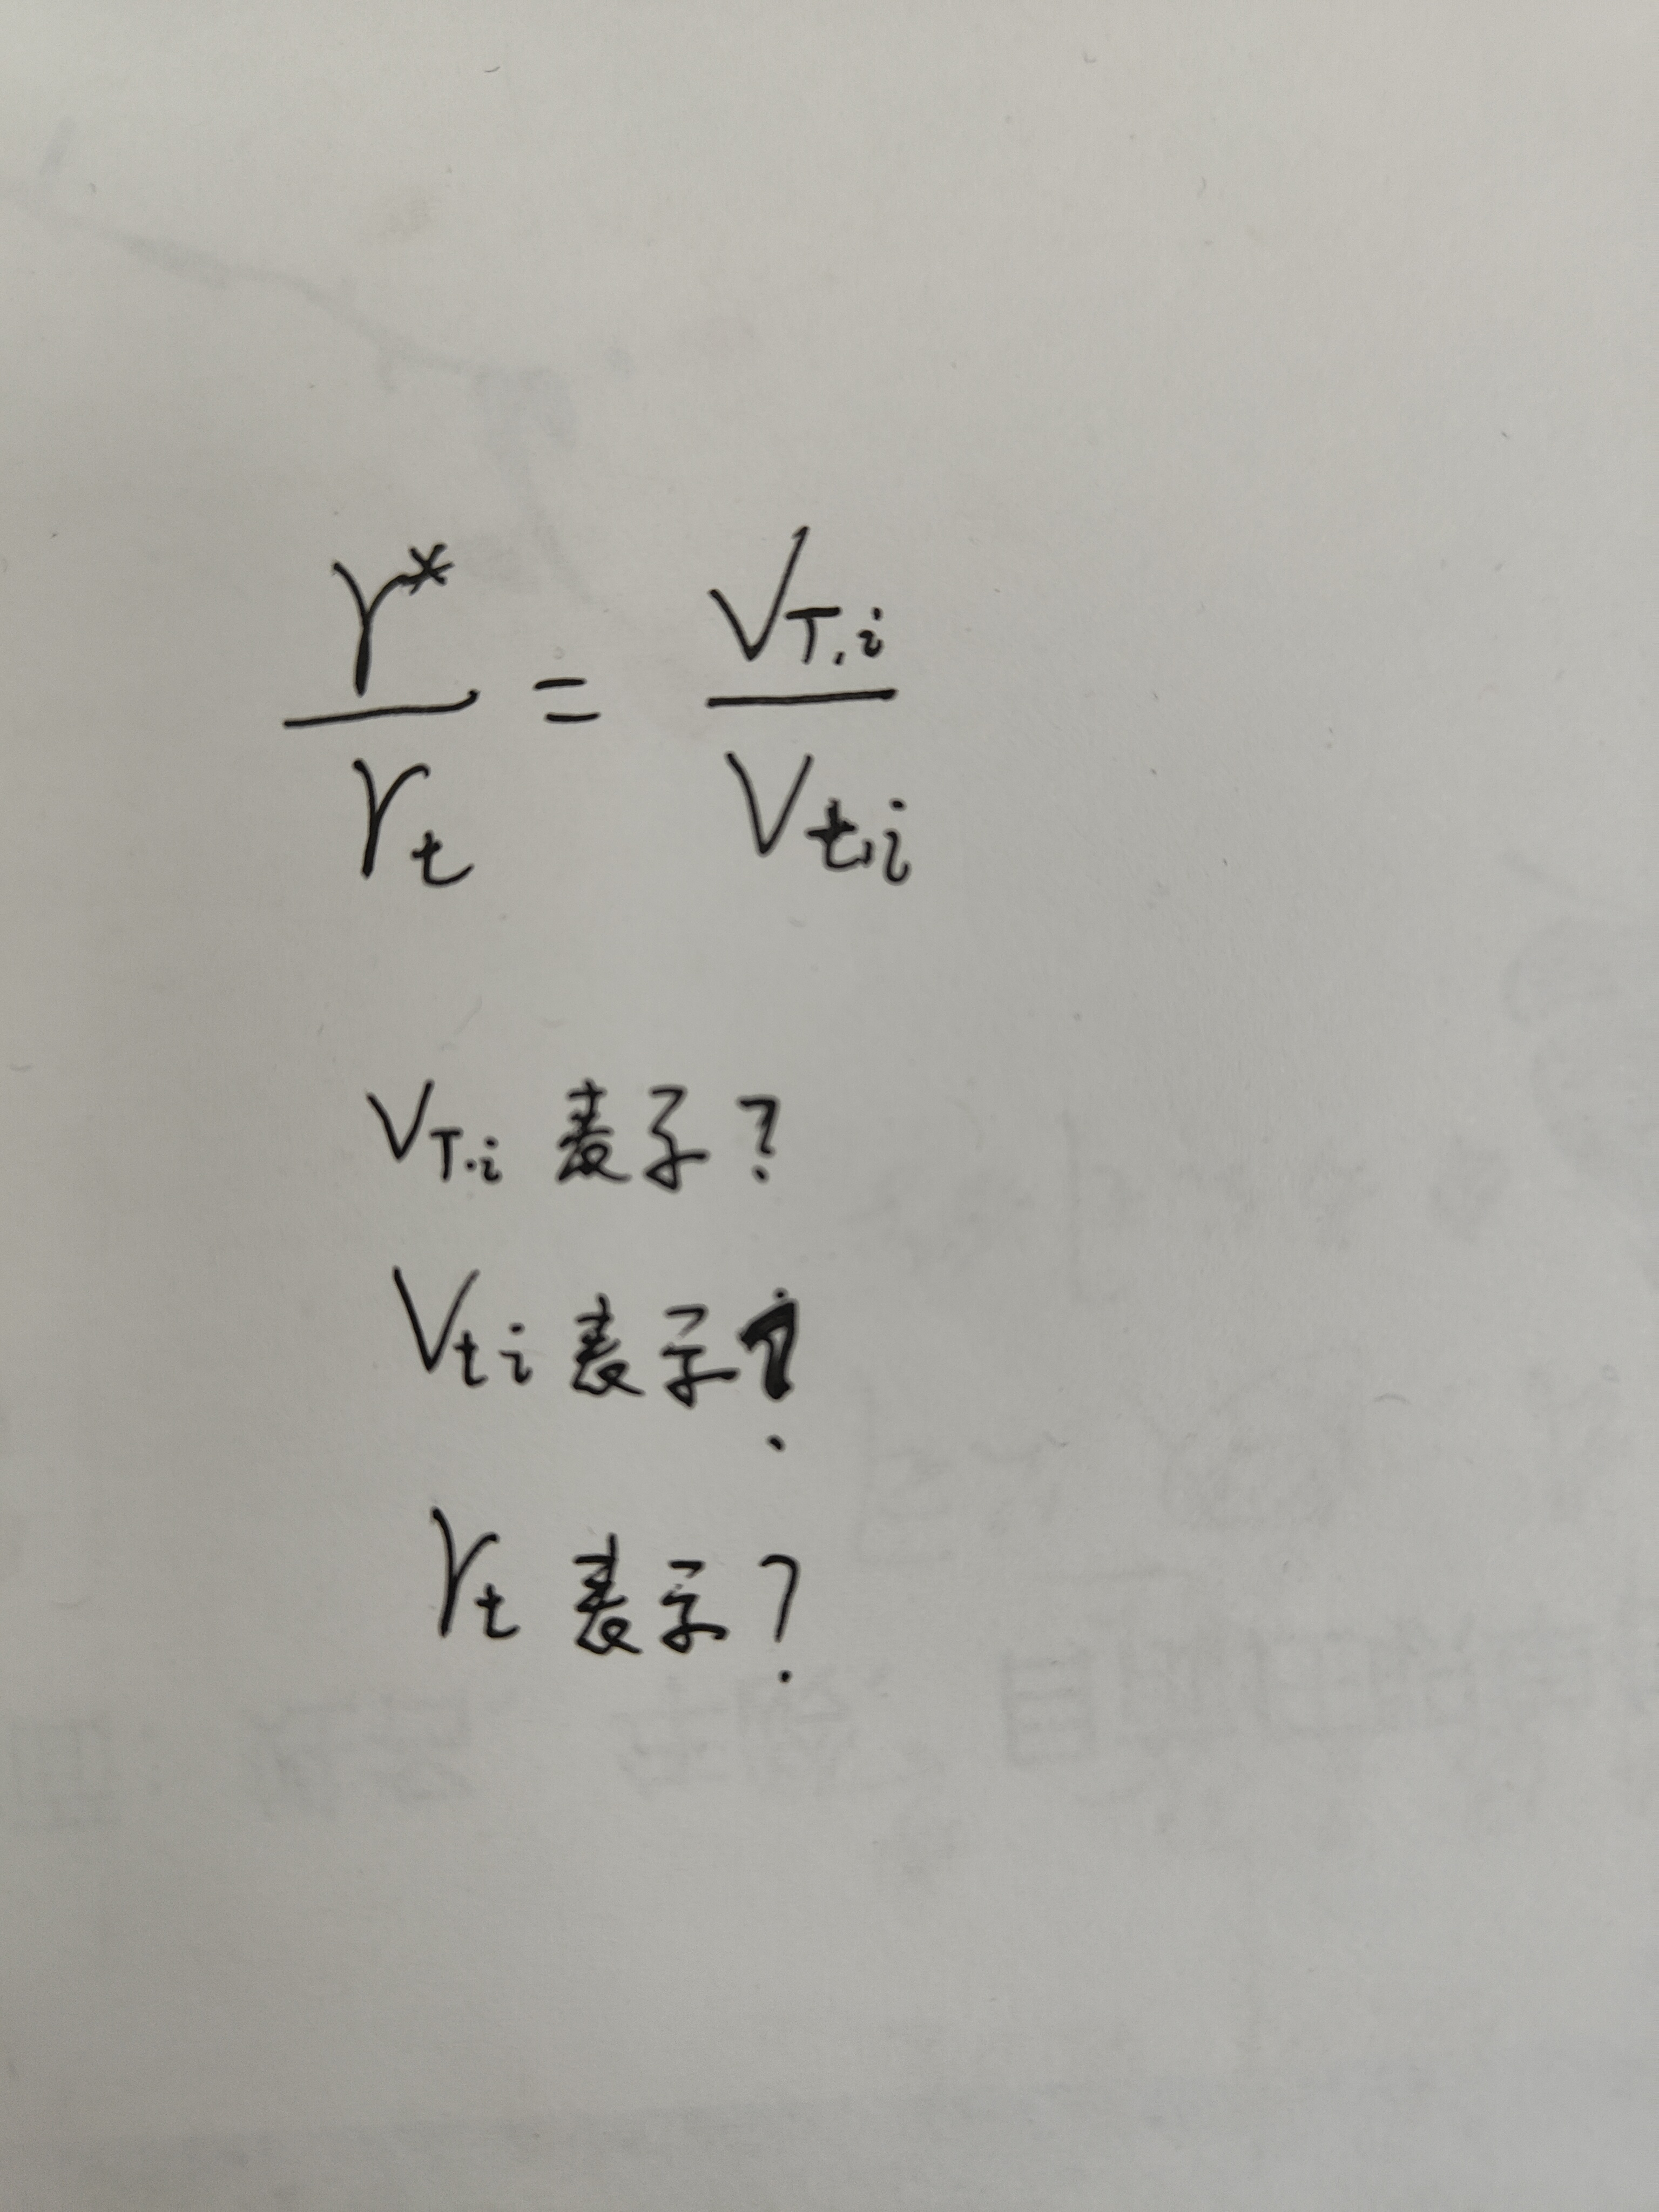 γ* / γt = VT,i / Vt,i
VT,i 表示?
Vt i 表示?
γt 表示?